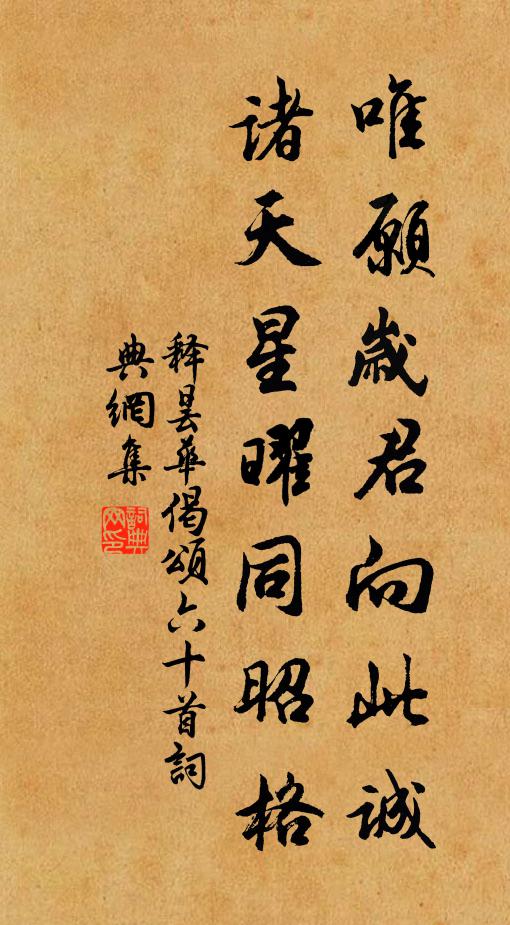 唯願歲君向此誠
諸天星曜同昭格
釋曇華偈頌六十首詞
典網集
詞典
网印